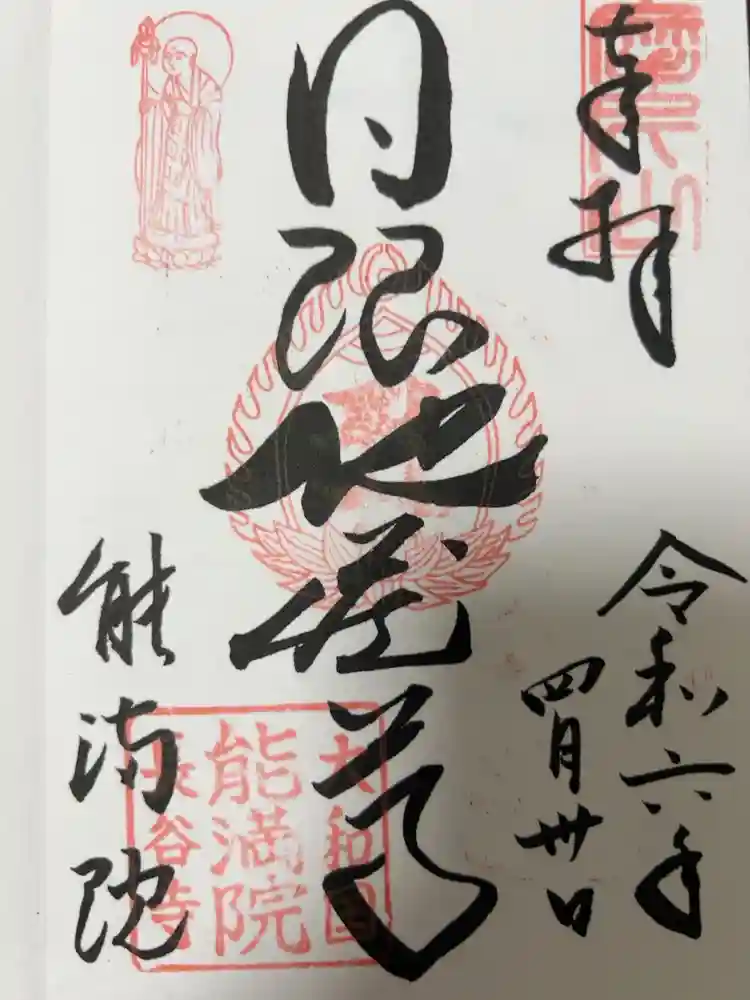 奉拝
令和六年
四月卅日
日限地蔵尊
能満院
大和国
能満院
長谷寺